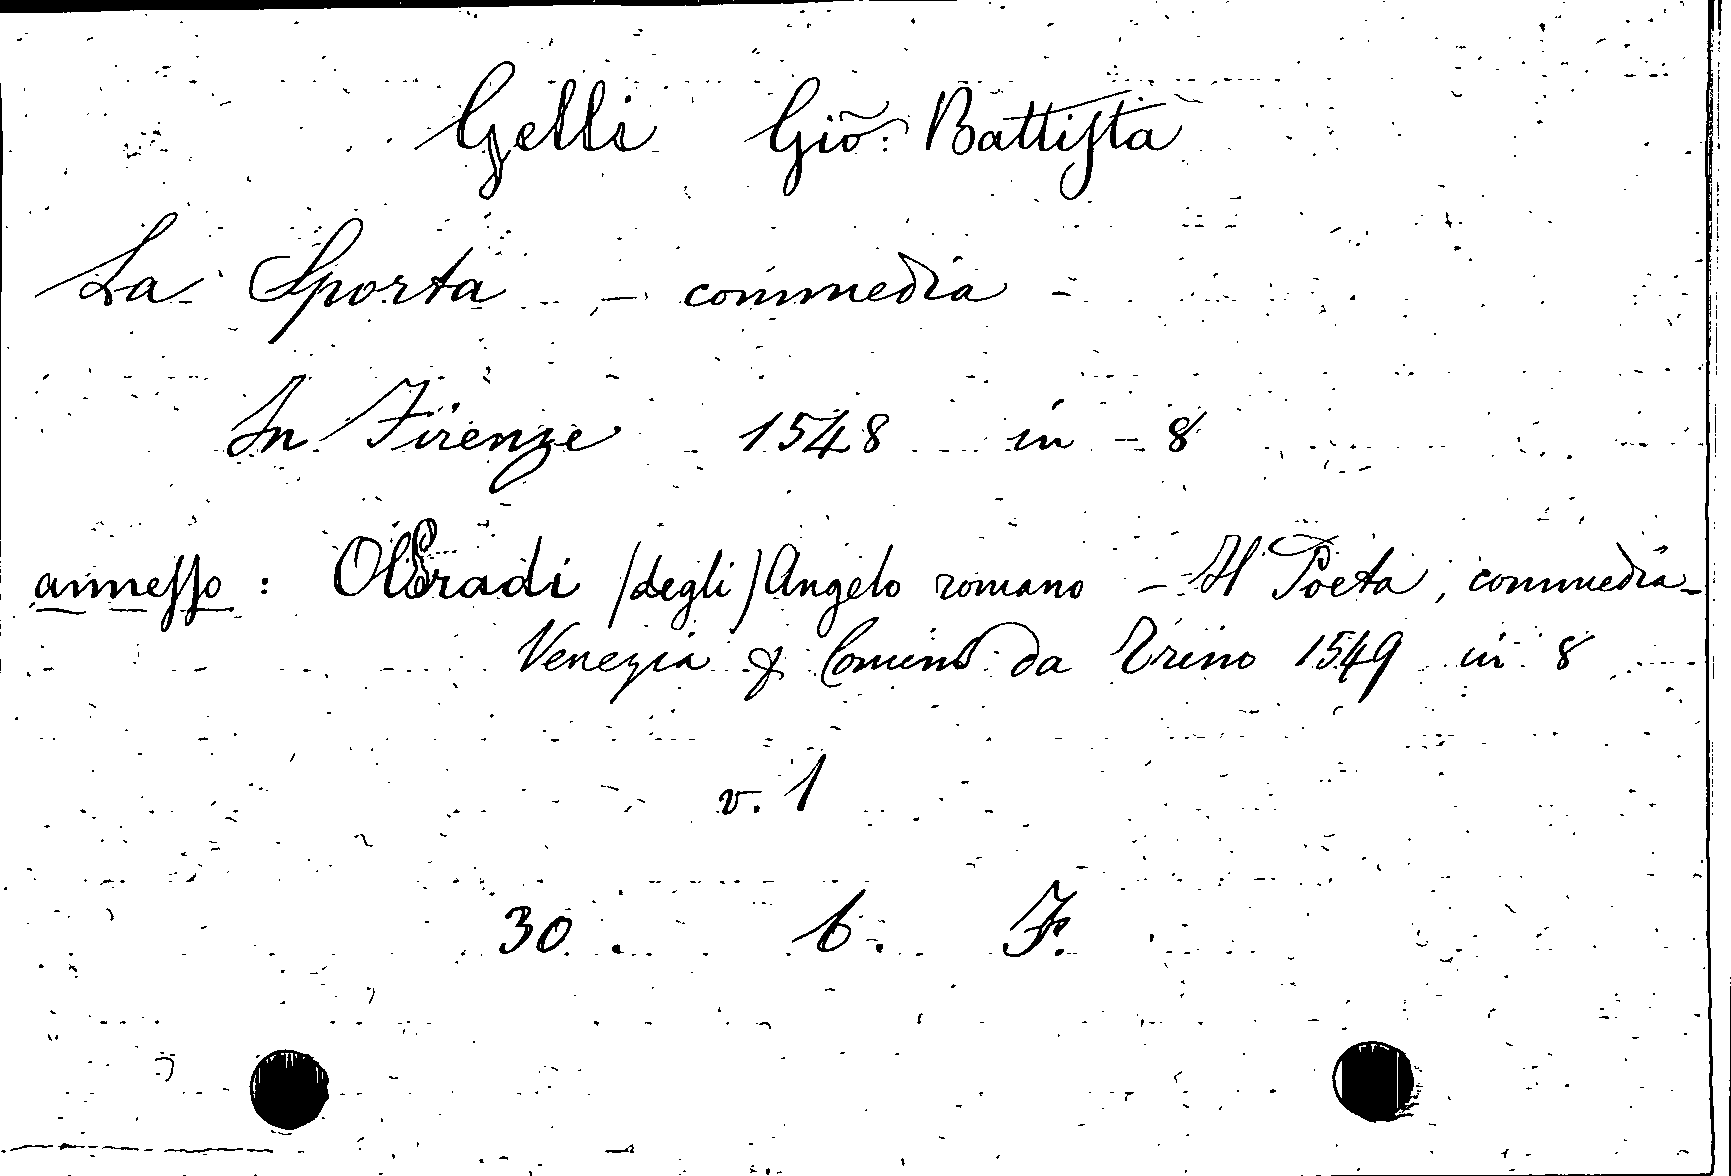 Gelli Giō: Battista
La Sporta – commedia –
In Firenze 1548 in – 8
annesso : Oldradi (degli) Angelo romano – Il Poeta, commedia –
Venezia & Comino da Trino 1549 in 8
v. 1
30. b. F.